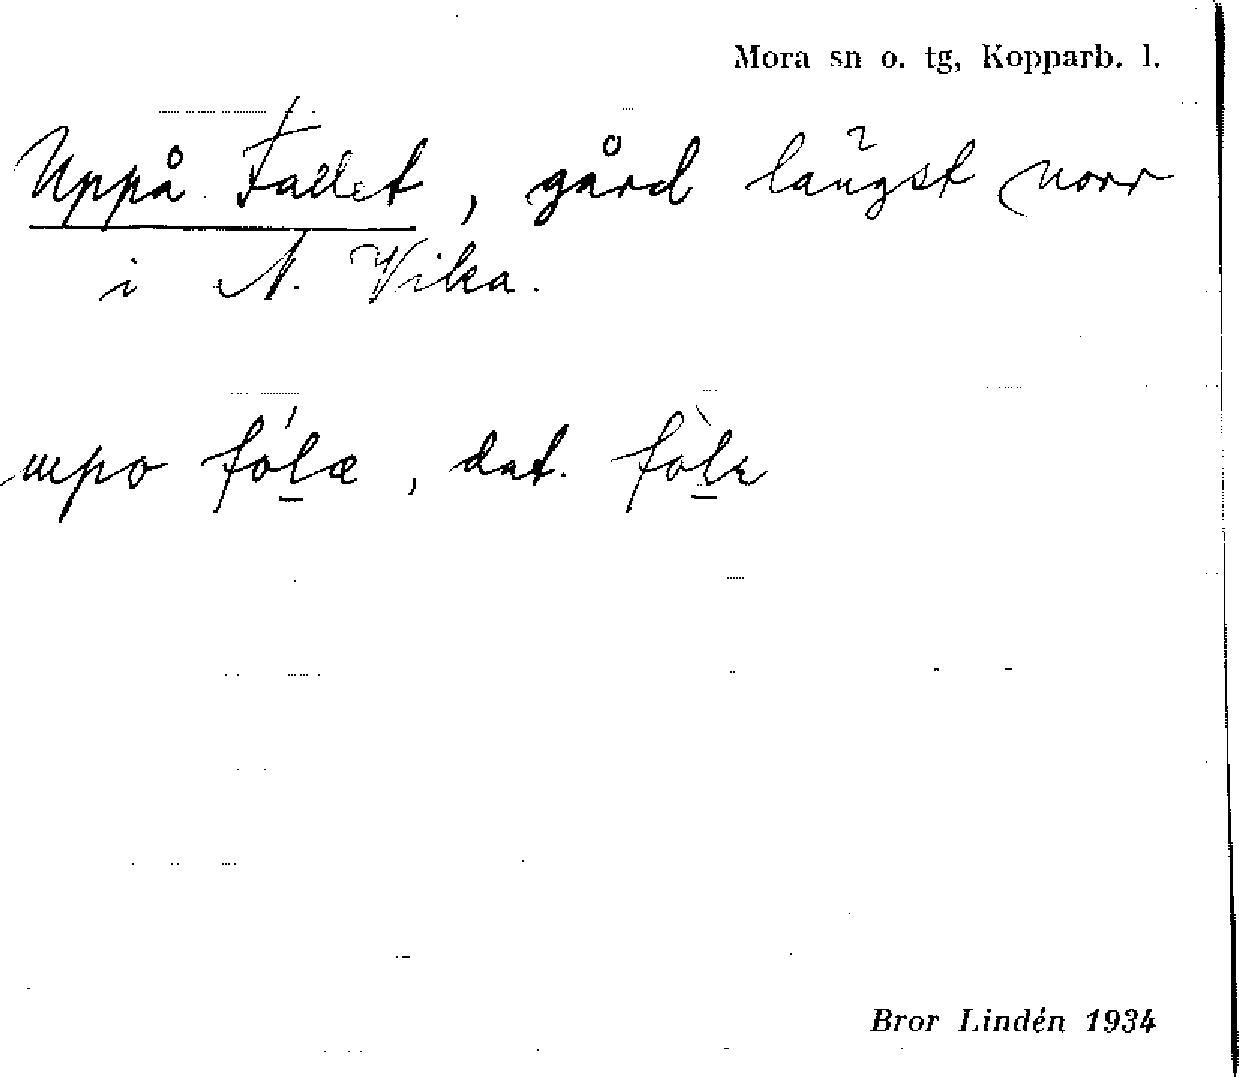 Mora sn o. tg, Kopparb. l.
Uppå Fallet, gård längst norr
i N. Vika.
uppo fól̲æ, dat. fòl̲e
Bror Lindén 1934